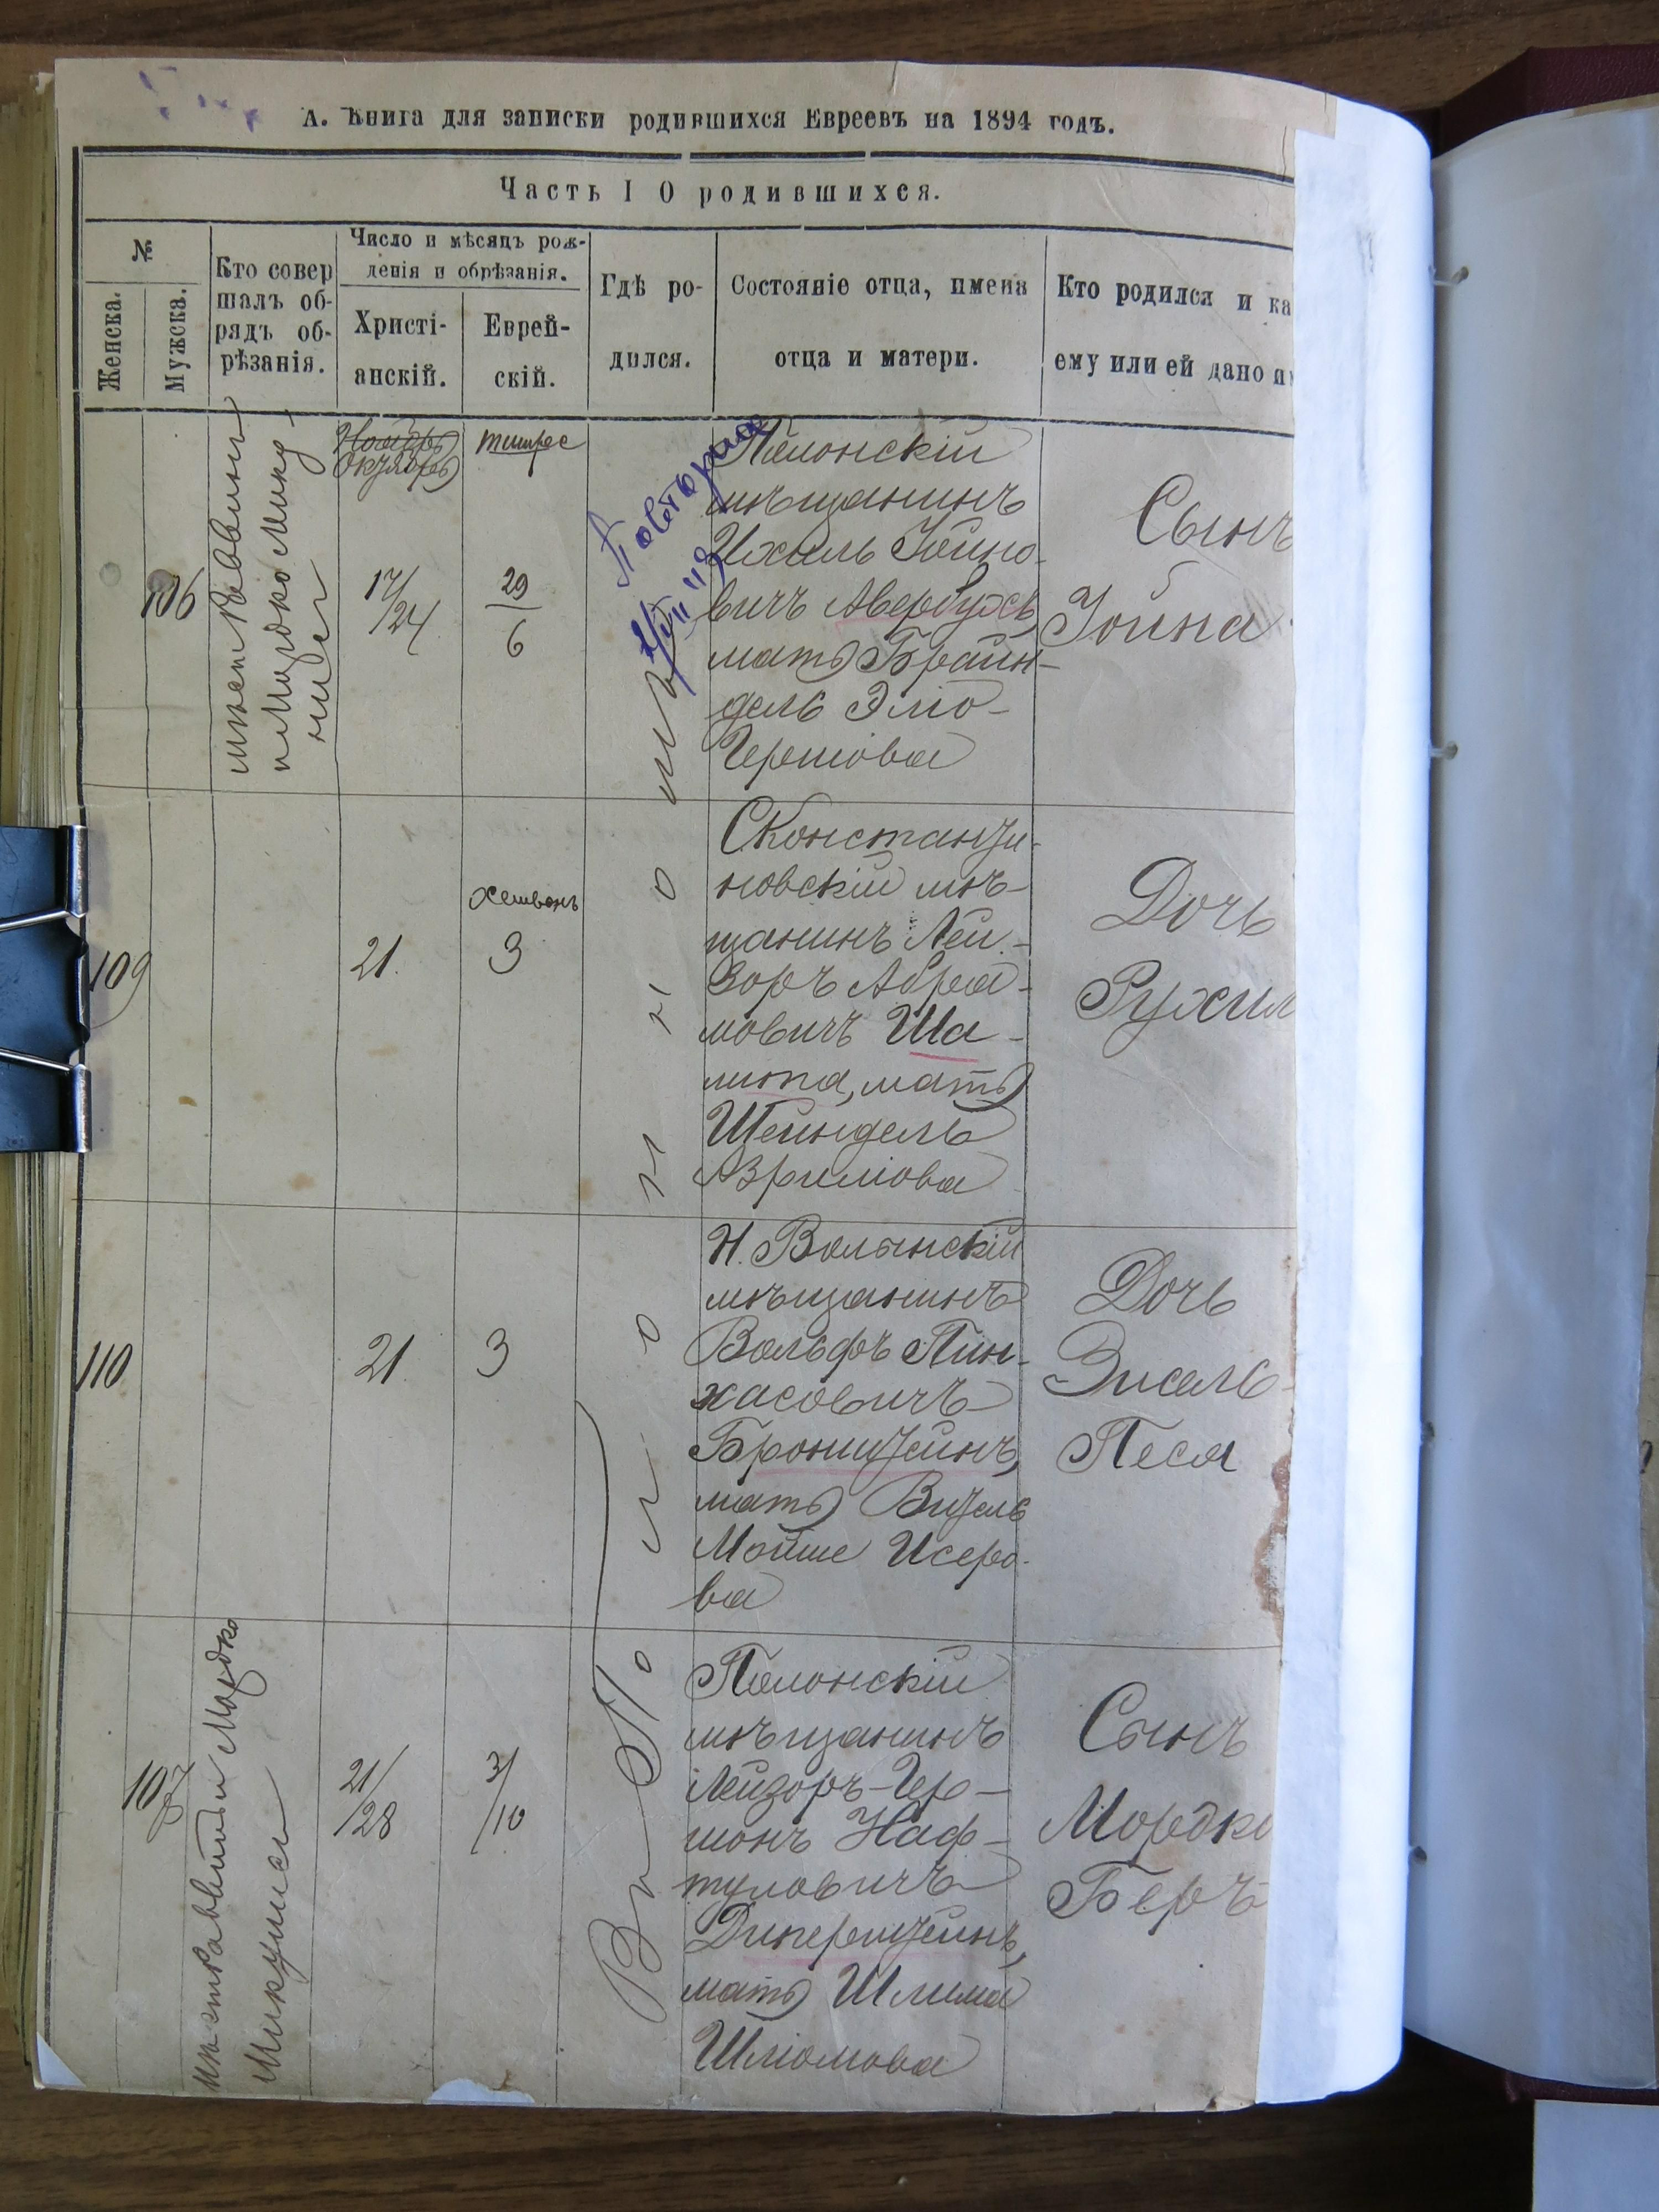 А. Книга для записки родившихся Евреевъ на 1894 годъ.
Часть I О родившихся.
№
Женска.
Мужска.
Кто совер
шалъ об-
рядъ об-
рѣзанія.
Число и мѣсяцъ рож-
денія и обрѣзанія.
Христі-
анскій.
Еврей-
скій.
Гдѣ ро-
дился.
Состояніе отца, имена
отца и матери.
Кто родился и ка
ему или ей дано и
106
Мордко
Ноябрь
Октябрь
17/24
тишрес
29
6
Повторна
Полонскій
мѣщанинъ
Ихиль Іойно-
вичъ Авербухъ,
мать Браин-
дель Элio-
Гершова
Сынъ
Іойна
109
21.
Хешвонъ
3
СКонстанти-
новскій мѣ-
щанинъ Лей-
зоръ Абра-
мовичъ Ша-
мать
Шейндель
Азрилiова
Дочь
Рухил
110
21.
3
Н. Волынскій
мѣщанинъ
Вольфъ Пин-
хасовичъ
Бронштейнъ,
мать Витель
Мойше Исеро-
ва
Дочь
Зисель-
Песя
107
Мордко
21/28
3/10
Въ Полонномъ
Полонскій
мѣщанинъ
Лейзоръ-Гер-
шонъ Наф-
туловичъ
Диперштейнъ,
мать Шлима
Шліомова
Сынъ
Мордко
Беръ